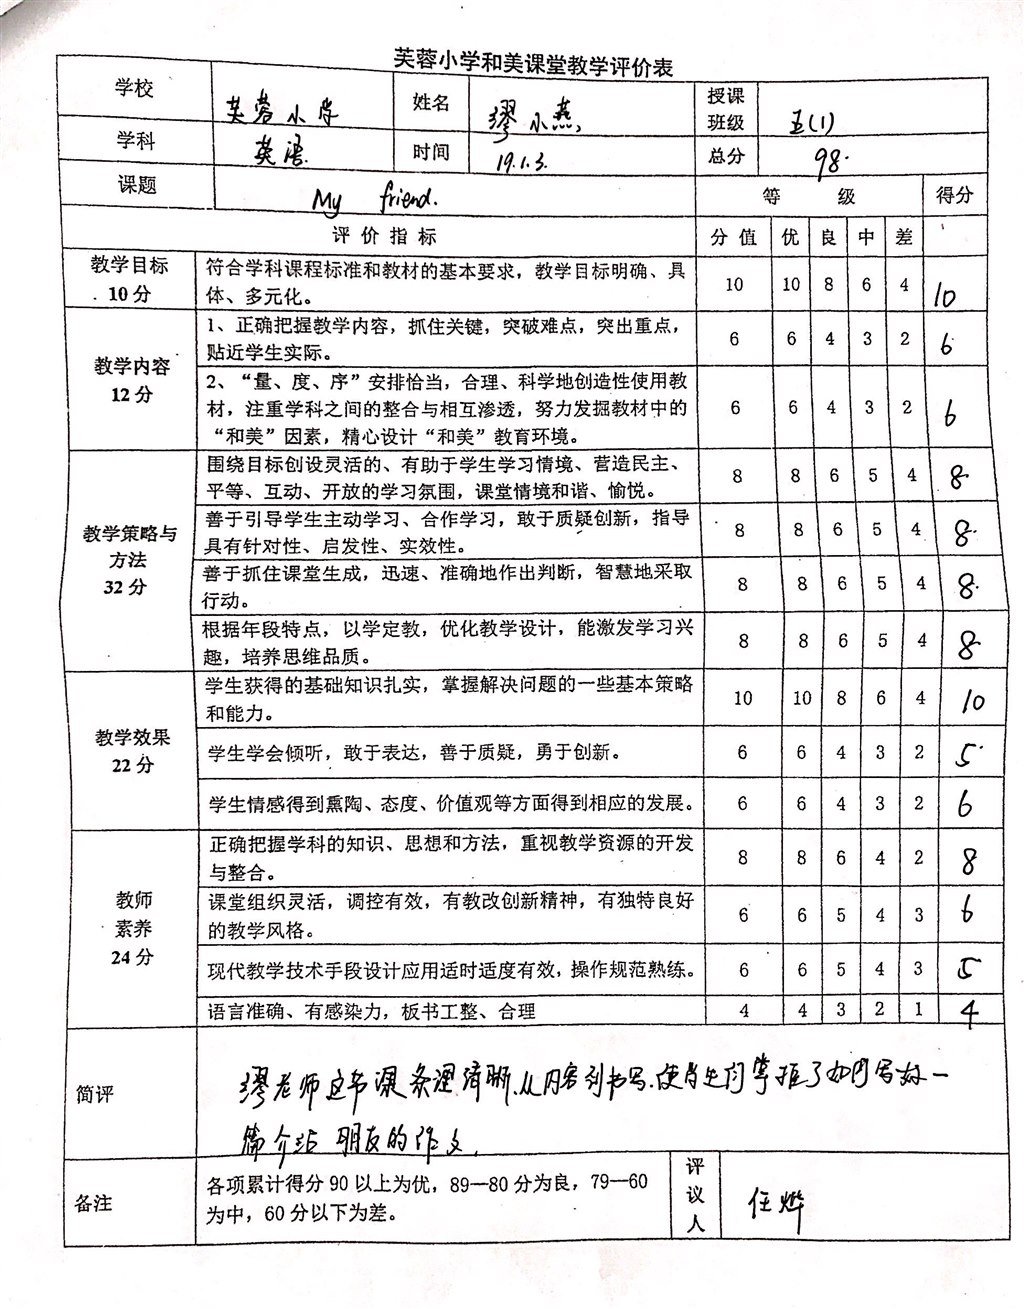 芙蓉小学和美课堂教学评价表
学校 芙蓉小学 姓名 缪小燕 授课班级 五(1)
学科 英语 时间 19.1.3. 总分 98.
课题 My friend. 等 级 得分
评 价 指 标 分 值 优 良 中 差
教学目标 10 分 符合学科课程标准和教材的基本要求，教学目标明确、具
体、多元化。 10 10 8 6 4 10
教学内容 12 分 1、正确把握教学内容，抓住关键，突破难点，突出重点，
贴近学生实际。 6 6 4 3 2 6
2、“量、度、序”安排恰当，合理、科学地创造性使用教
材，注重学科之间的整合与相互渗透，努力发掘教材中的
“和美”因素，精心设计“和美”教育环境。 6 6 4 3 2 6
教学策略与方法 32 分 围绕目标创设灵活的、有助于学生学习情境、营造民主、
平等、互动、开放的学习氛围，课堂情境和谐、愉悦。 8 8 6 5 4 8
善于引导学生主动学习、合作学习，敢于质疑创新，指导
具有针对性、启发性、实效性。 8 8 6 5 4 8
善于抓住课堂生成，迅速、准确地作出判断，智慧地采取
行动。 8 8 6 5 4 8
根据年段特点，以学定教，优化教学设计，能激发学习兴
趣，培养思维品质。 8 8 6 5 4 8
教学效果 22 分 学生获得的基础知识扎实，掌握解决问题的一些基本策略
和能力。 10 10 8 6 4 10
学生学会倾听，敢于表达，善于质疑，勇于创新。 6 6 4 3 2 5
学生情感得到熏陶、态度、价值观等方面得到相应的发展。 6 6 4 3 2 6
教师素养 24 分 正确把握学科的知识、思想和方法，重视教学资源的开发
与整合。 8 8 6 4 2 8
课堂组织灵活，调控有效，有教改创新精神，有独特良好
的教学风格。 6 6 5 4 3 6
现代教学技术手段设计应用适时适度有效，操作规范熟练。 6 6 5 4 3 5
语言准确、有感染力，板书工整、合理 4 4 3 2 1 4
简评 缪老师这节课条理清晰.从内容到书写.使学生们掌握了如何写好一
篇介绍朋友的作文.
备注 各项累计得分 90 以上为优，89—80 分为良，79—60
为中，60 分以下为差。
评议人 任烨